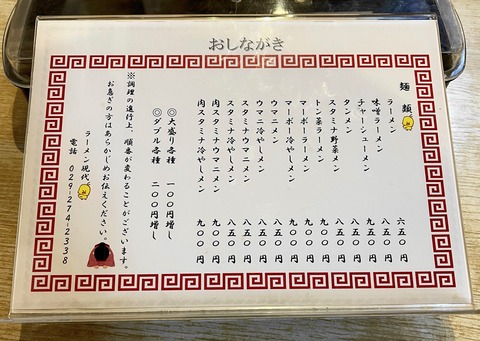 おしながき
麺類
ラーメン 六五〇円
味噌ラーメン 八五〇円
チャーシューメン 九五〇円
タンメン 八五〇円
スタミナ野菜メン 八五〇円
トン菜ラーメン 九〇〇円
マーボーラーメン 九〇〇円
マーボー冷しメン 九〇〇円
ウマニメン 八五〇円
ウマニ冷やしメン 八五〇円
スタミナウマニメン 八五〇円
スタミナ冷やしメン 八五〇円
肉スタミナウマニメン 九〇〇円
肉スタミナ冷やしメン 九〇〇円
◎大盛り各種 一〇〇円増し
◎ダブル各種 二〇〇円増し
※調理の進行上、順番が変わることがございます。
お急ぎの方はあらかじめお伝えください。
ラーメン現代
電話 029-274-2338